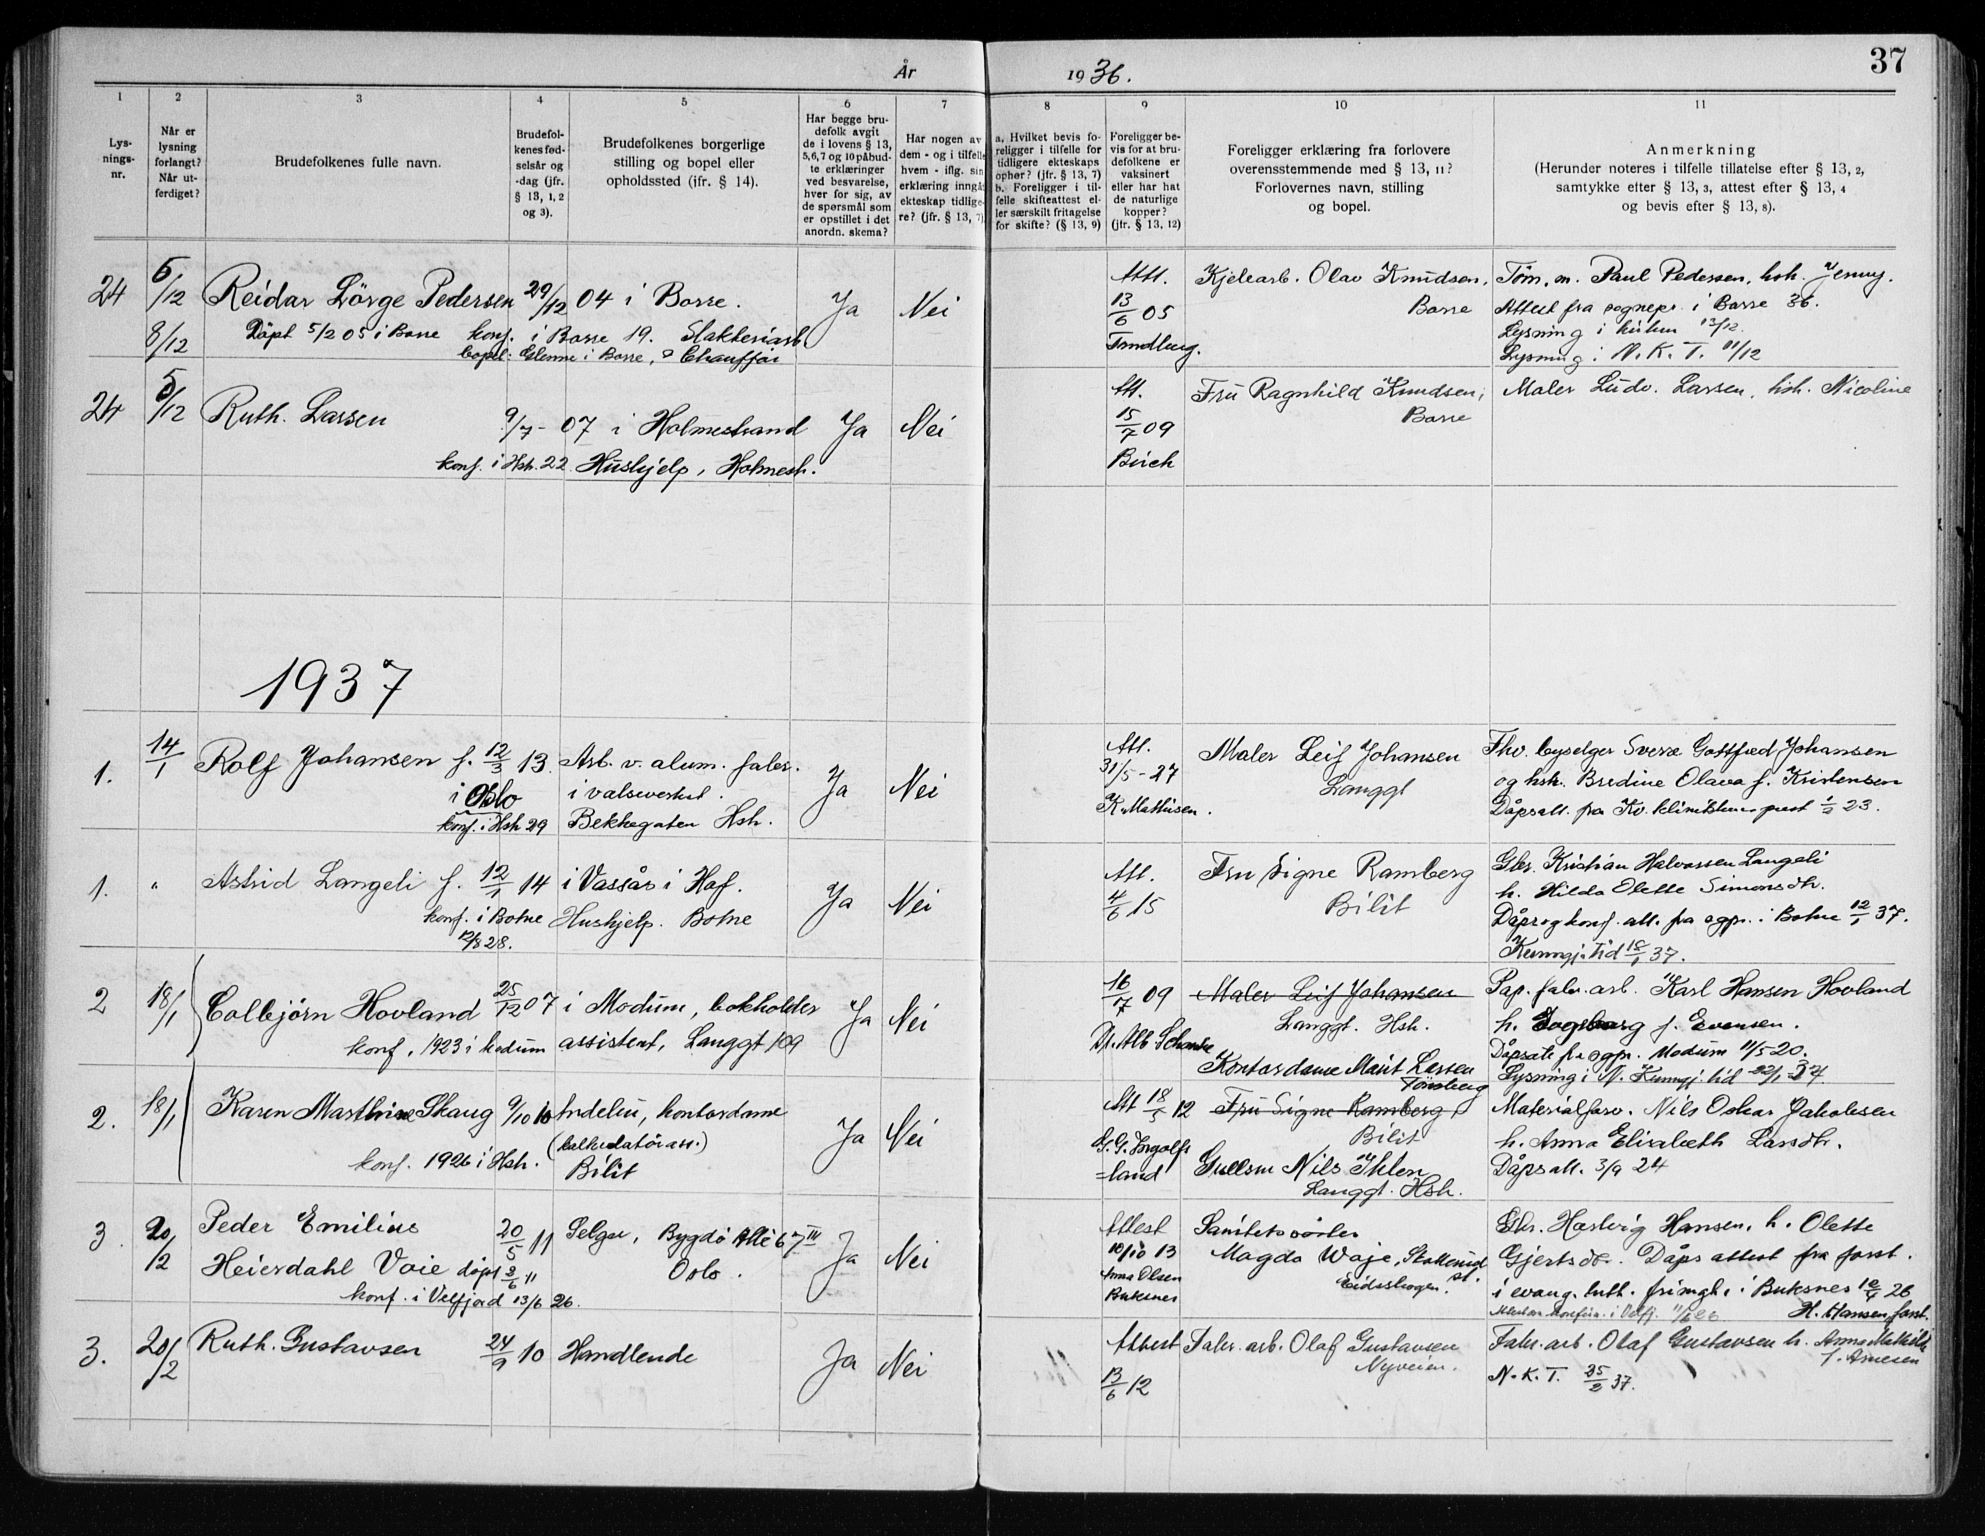 År 1936.
37
1 2 3 4 5 6 7 8 9 10 11
Lys-
nings-
nr.
Når er
lysning
forlangt?
Når ut-
ferdiget?
Brudefolkenes fulle navn.
Brudefol-
kenes fød-
selsår og
-dag (jfr.
§ 13, 1, 2
og 3).
Brudefolkenes borgerlige
stilling og bopel eller
opholdssted (ifr. § 14).
Har begge bru-
defolk avgit
de i lovens § 13,
5,6,7 og 10 påbud-
te erklæringer
ved besvarelse,
hver for sig, av
de spørsmål som
er opstillet i det
anordn. skema?
Har nogen av
dem - og i tilfelle
hvem - iflg. sin
erklæring inngå
ekteskap tidlige-
re? (jfr. § 13, 7)
a. Hvilket bevis fo-
religger i tilfelle for
tidligere ekteskaps
ophør? (jfr. § 13, 7)
b. Foreligger i til-
felle skifteattest el-
ler særskilt fritagelse
for skifte? (§ 13, 9)
Foreligger be-
vis for at bru-
defolkene er
vaksinert
eller har hat
de naturlige
kopper?
(jfr. § 13, 12)
Foreligger erklæring fra forlovere
overensstemmende med § 13, 11?
Forlovernes navn, stilling
og bopel.
Anmerkning
(Herunder noteres i tilfelle tillatelse efter § 13, 2,
samtykke efter § 13, 3, attest efter § 13, 4
og bevis efter § 13, 8).
24 5/12 Reidar Lörge Pedersen 29/12 04 i Borre. Ja Nei
8/12 Döpt 5/2 05 i Borre konf. i Borre 19. Slakteriarb.
bopel: Glenne i Borre, Chauffør
Att.
13/6 05
Kjelearb. Olav Knudsen,
Borre
Töm.m. Paul Pedersen, hsh. Jenny.
Attest fra sognepr. i Borre 36.
Lysning i kirken 13/12.
Lysning i N.K.T. 11/12
24 5/12 Ruth. Larsen 9/7- 07 i Holmestrand Ja Nei
konf. i Hsh. 22 Hushjelp, Holmesh.
Att.
15/7 09
Birch
Fru Ragnhild Knudsen,
Borre
Maler Ludv. Larsen, hsh. Nicoline
1937
1. 14/1 Rolf Johansen f. 12/3 13. Arb. v. alum. fabr. Ja Nei
i Oslo i valseverkst.
konf. i Hsh 29 Bekkegaten Hsh.
Att.
31/5-27
K. Mathisen.
Maler Leif Johansen
Langgt
Fhv. byselger Sverre Gottfred Johansen
og hsk. Bredine Olava f. Kristensen
1. " Astrid Langeli f. 12/1 14 i Vassås i Hof. Ja Nei
konf. i Botne Hushjelp. Botne
12/8 28.
Att.
4/6 15
Fru Signe Ramberg
Bilit
Gbr. Kristian Halvorsen Langeli
h. Hilda Olette Simonsdtr.
Dåps og konf. att. fra sgpr. i Botne 12/1 37.
Kunngj.tid 15/1 37.
2 18/1 Colbjörn Hovland 25/12 07 i Modum, bokholder Ja Nei
konf. 1923 i Modum assistent, Langgt 109
16/7 09
Maler Leif Johansen
Langgt. Hsh.
Kontordame Marit Larsen
Tönsberg
Pap. fabr. arb. Karl Hansen Hovland
h. Ingeborg f. Evensen.
Dåpsatt fra sgpr. Modum 11/5 20.
Lysning i N. Kunngj. tid 22/1 37
2. 18/1 Karen Marthine Skaug 9/10 10 Indelin, kontordame Ja Nei
(kalkulatörass.)
konf. 1926 i Hsh. Bilit
Att 18/5 12
G. G. Ingolfs
=land
Fru Signe Ramberg
Bilit
Gullsm Nils Ihlen
Langgt. Hsh.
Materialforv. Nils Oskar Jakobsen
h. Anna Elisabeth Larsdtr.
Dåpsatt. 3/9 24
3. 20/2 Peder Emilius 20/5 11 Selger, Bygdö Allé 67 III Ja Nei
Heierdahl Voie döpt 2/6 11 Oslo.
konf. i Velfjord 13/6 26.
Attest
10/10 13
Anna Olsen
Buksnes
Magda Waje, Stokmid st.
Eidsskogen.
Gbr. Hartvig Hansen, h. Olette
Gjertsdtr. Dåps attest fra forst.
i evang. luth. frimgh. i Buksnes 10/4 26
H. Hansen, forst.
3. 20/2 Ruth. Gustavsen 24/9 10 Handlende Ja Nei
Attest
13/6 12
Fabr. arb. Olaf Gustavsen
Nyveien.
Fabr. arb. Olaf Gustavsen h. Anna Mathilde
f. Arnesen
N.K.T. 25/2 37.